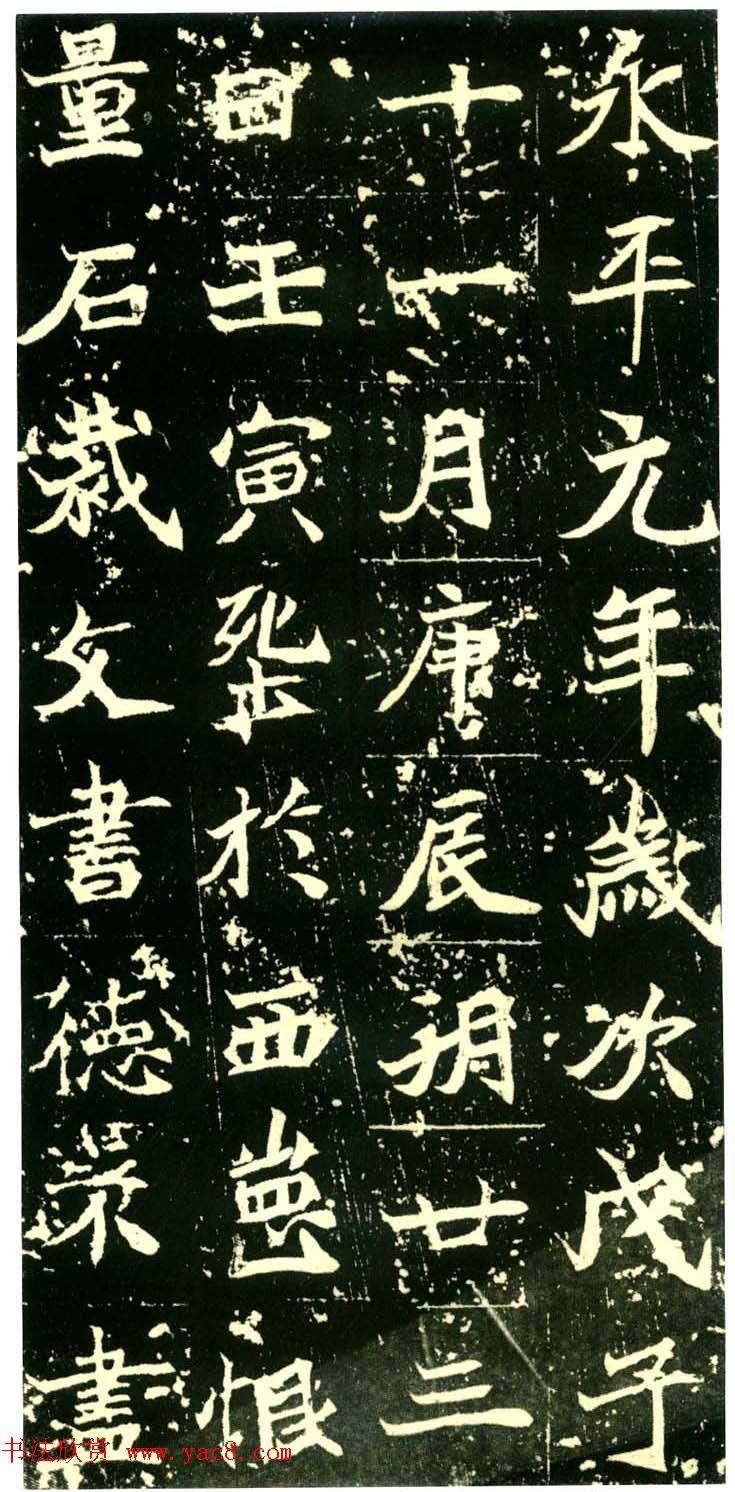 永平元年歲次戊子
十一月庚辰朔廿三
日壬寅塟於西恨
量石裁文書德
书法欣赏 www.yac8.com